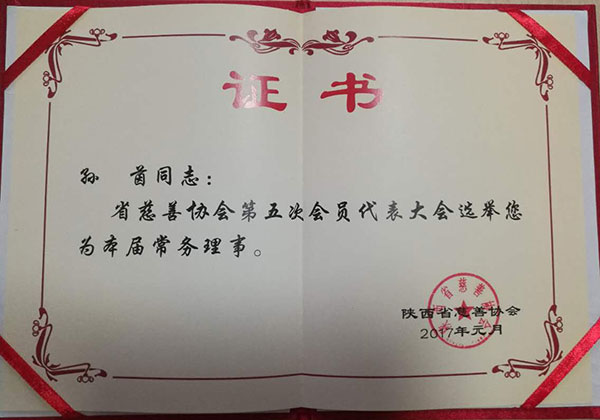 证书
孙 茵同志：
省慈善协会第五次会员代表大会选举您
为本届常务理事。
陕西省慈善协会
2017年元月
陕西省慈善协会